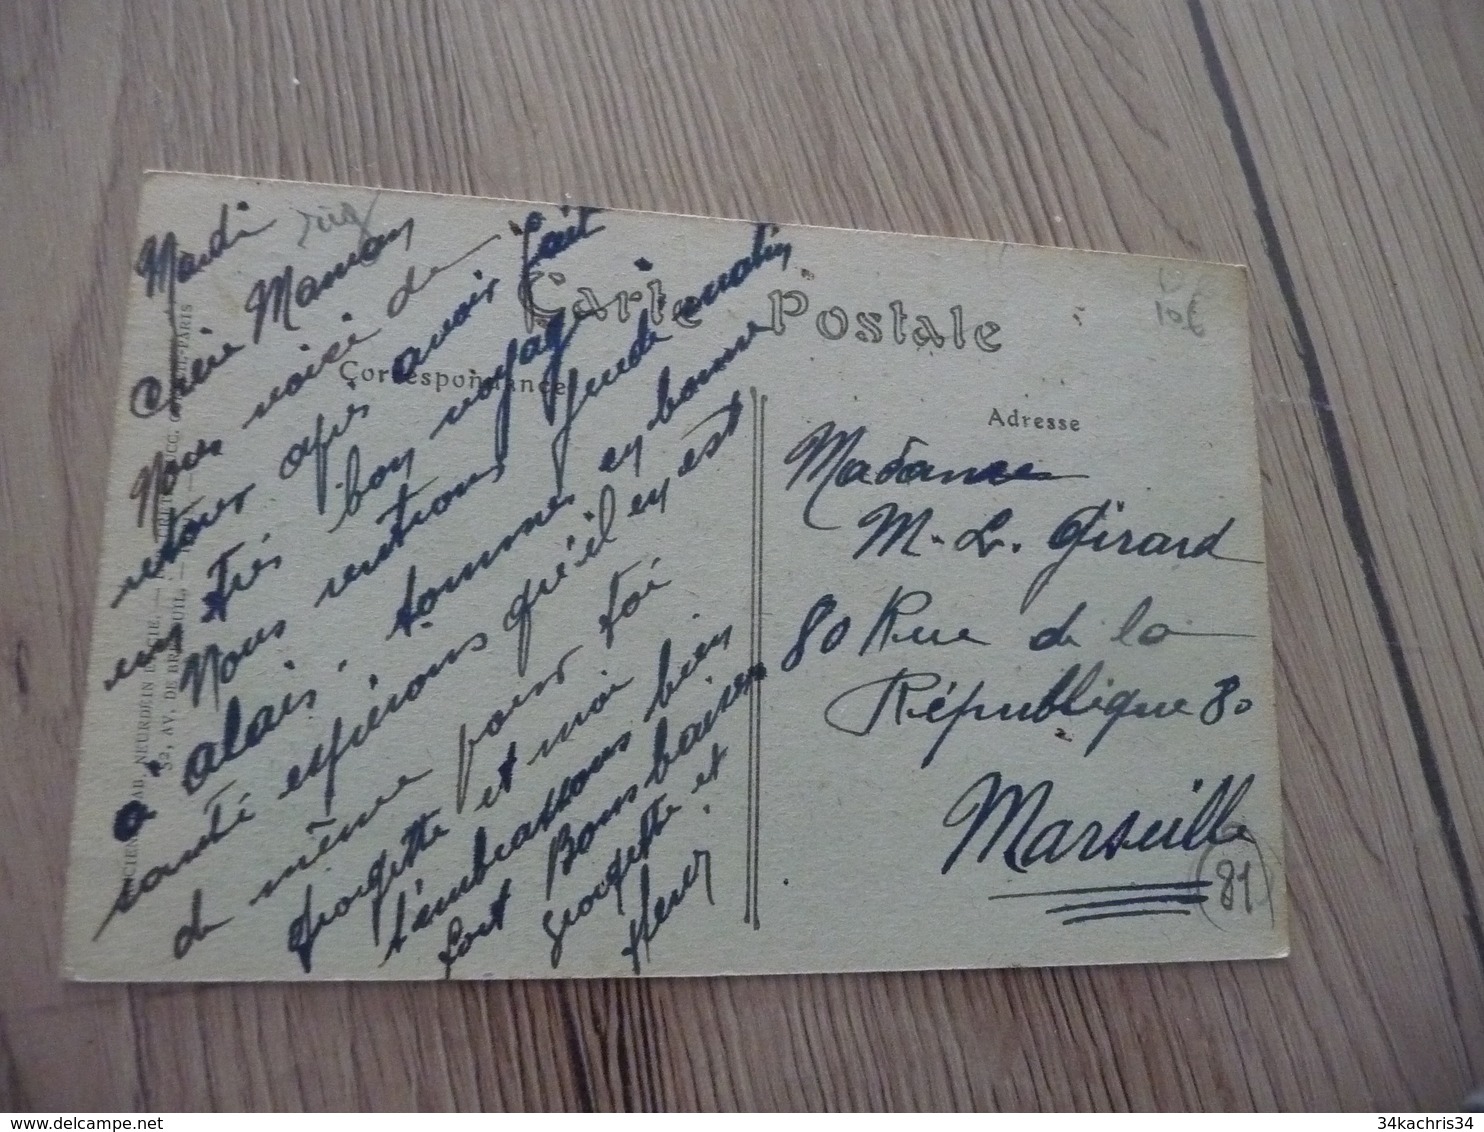 Mardi
Chérie Maman
Nous voici de
retour après avoir fait
un très bon voyage
Nous rentrons jeudi matin
à Alais, sommes en bonne
santé espérons qu'il en est
de même pour toi
Georgette et moi
t'embrassons bien
fort Bons baisers
Georgette et
Henri
Carte Postale
Correspondance
Adresse
Madame
M. L. Girard
80 Rue de la
République 80
Marseille
81
106
NEURDEIN ET CIE.
52, AV. DE BRETEUIL.
PARIS
34kachris34